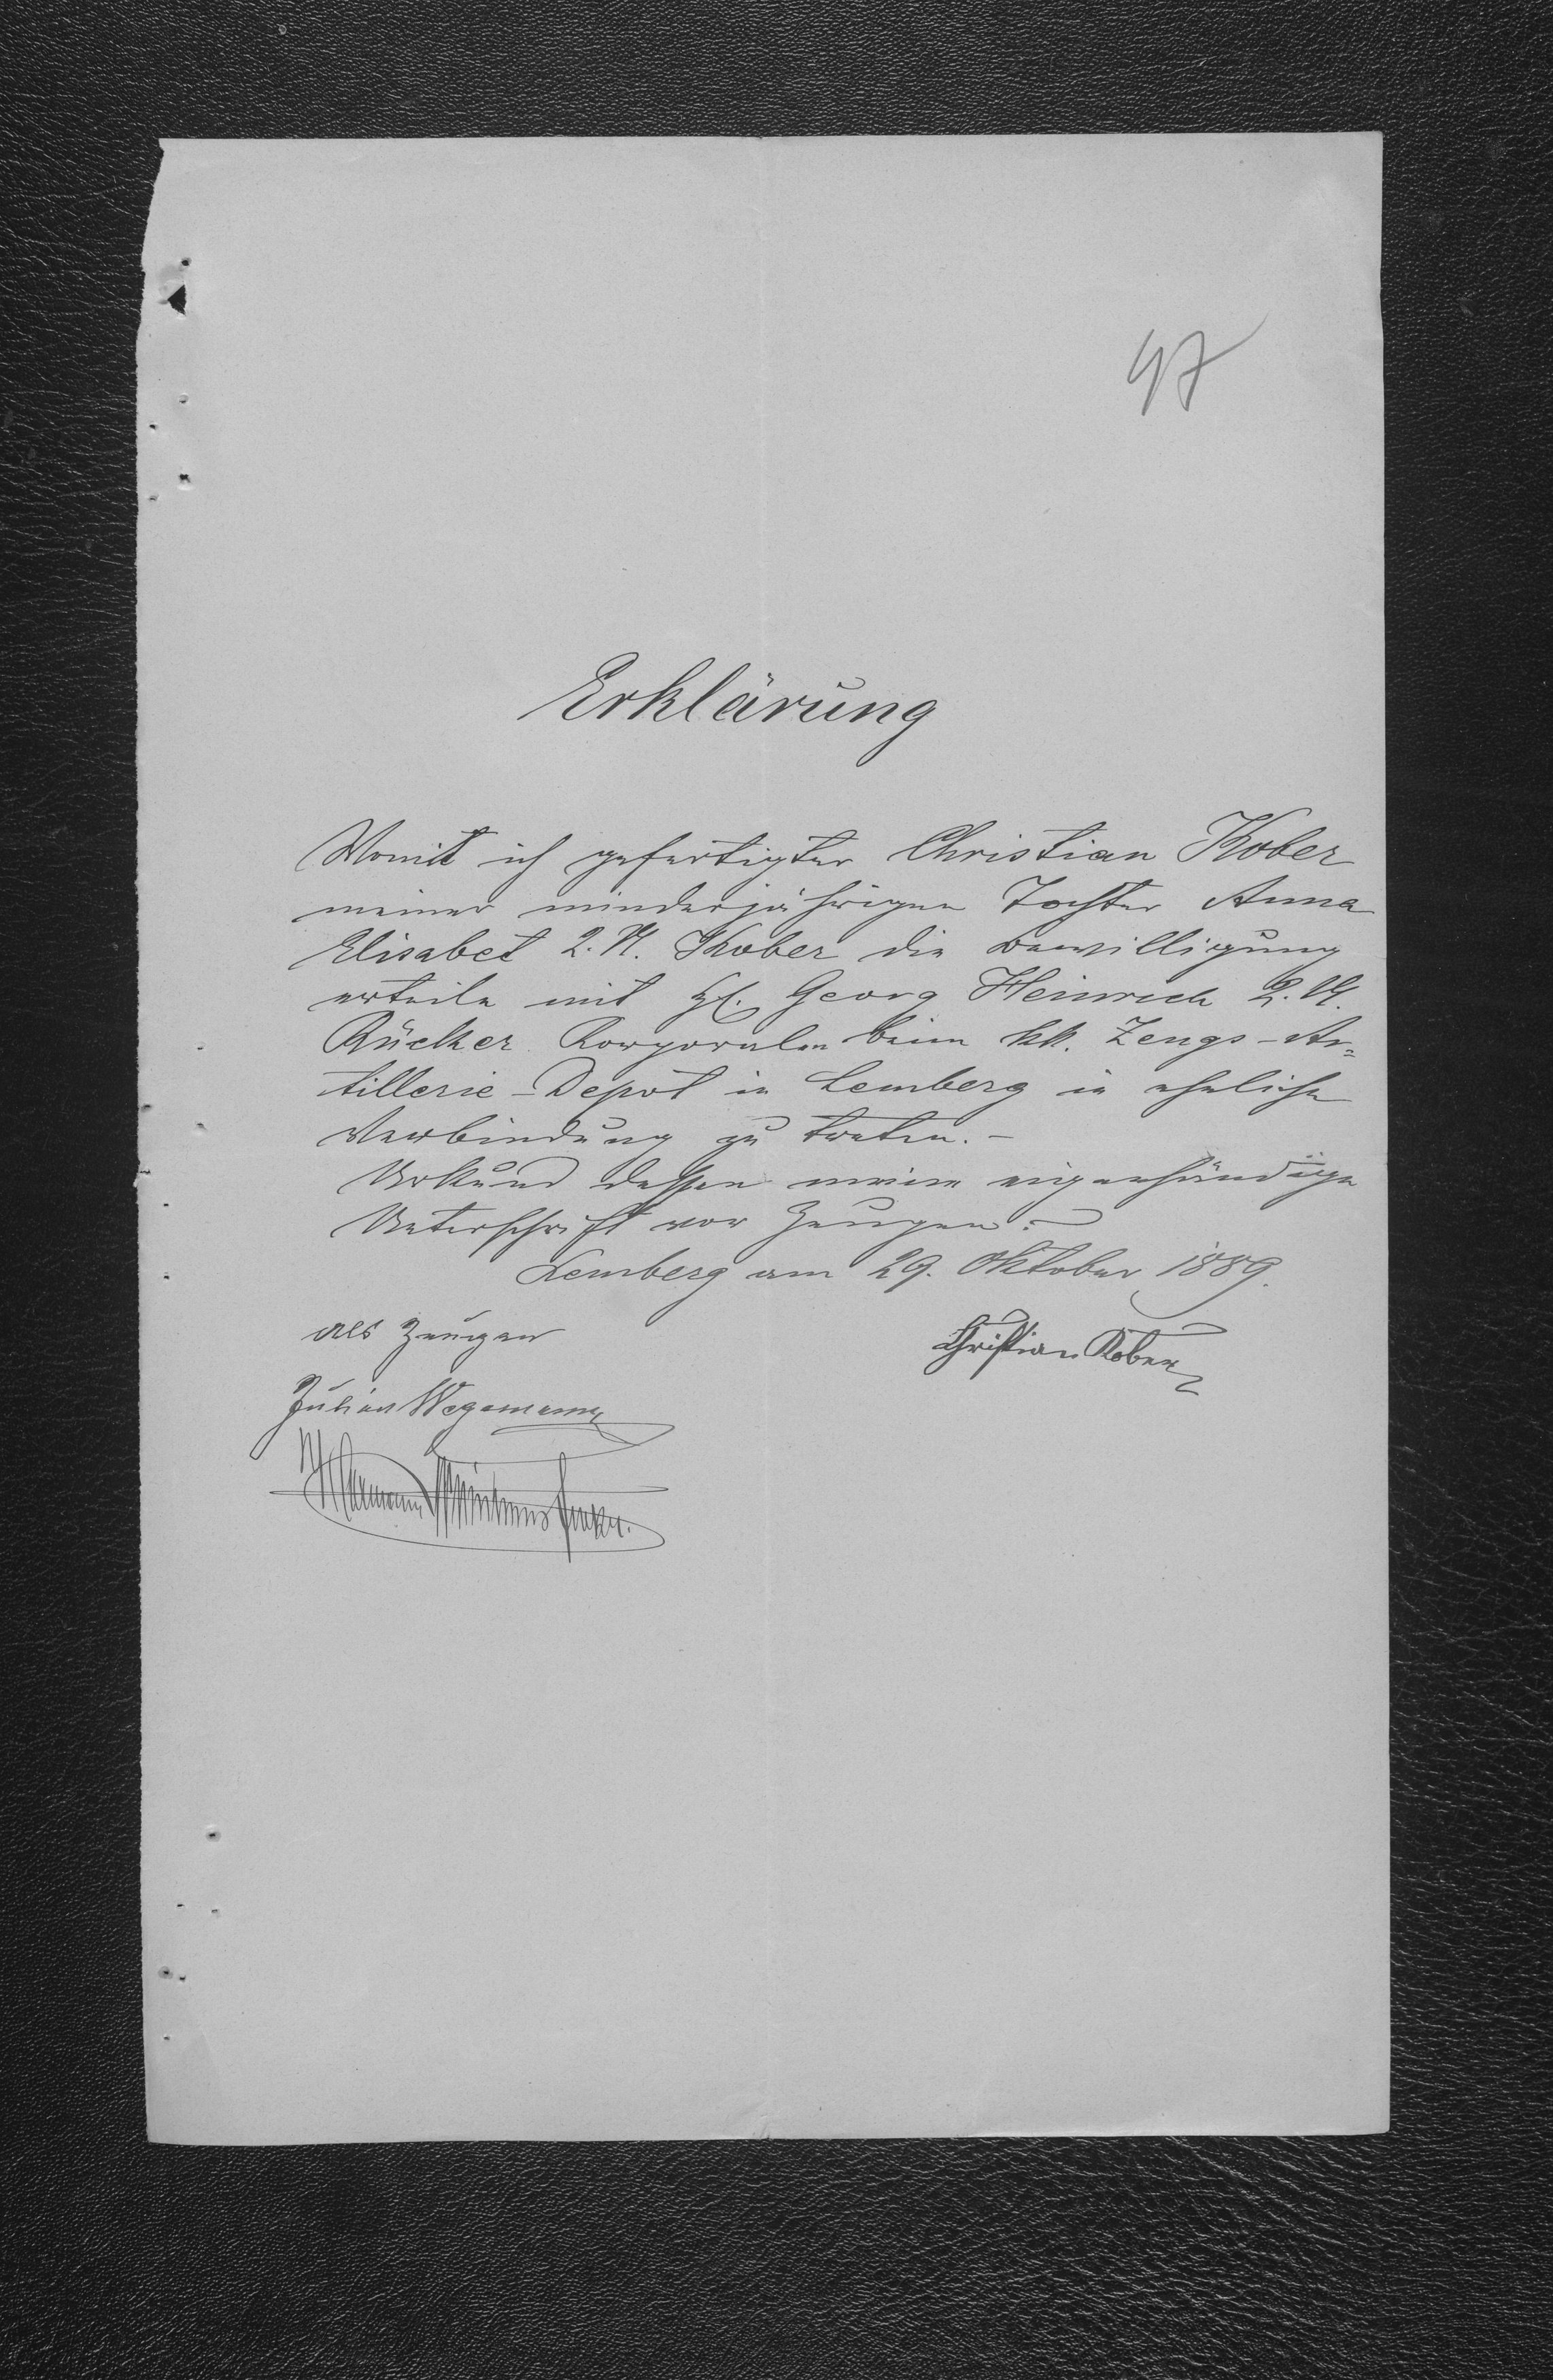 47
Erklärung
Womit ich gefertigter Christian Kober
meiner minderjährigen Tochter Anna
Elisabet 2. N. Kober die Bewilligung
erteile mit H. Georg Heinrich 2. N.
Rücker Korporalen beim kk. Zeugs-Ar=
tillerie-Depôt in Lemberg in eheliche
Verbindung zu treten.-
Urkund dessen meine eigenhändige
Unterschrift vor Zeugen.-
Lemberg am 29. Oktober 1889.
als Zeugen
Christian Kober
Julian Wegemann
Hermann